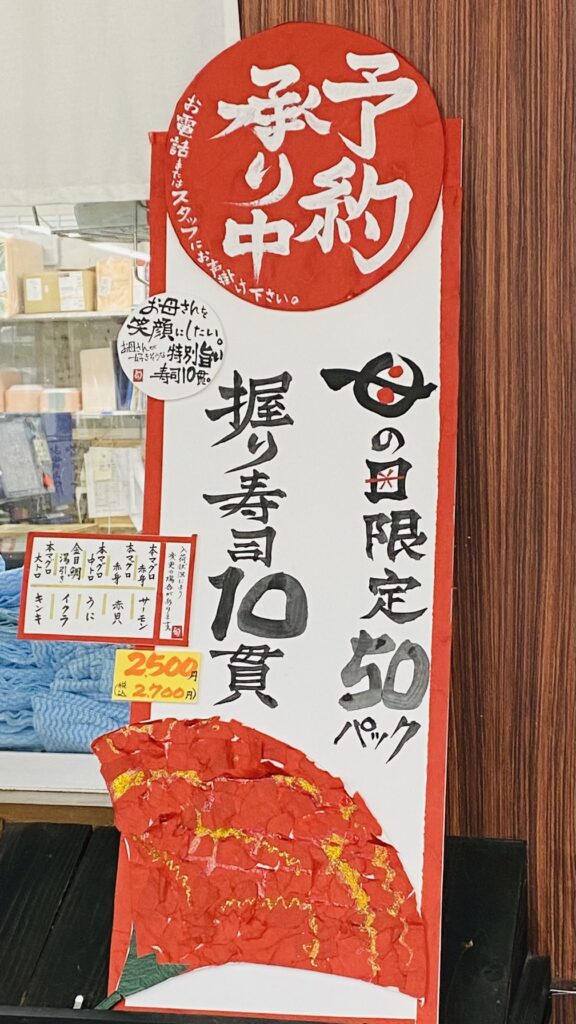 予約
承り中
お電話またはスタッフにお声掛け下さい。
母の日限定50パック
握り寿司10貫
お母さんを
笑顔にしたい。
お母さんが
一好きそうな
特別旨い
寿司10貫。
旬
入荷状況により
変更の場合があります
本マグロ赤身
サーモン
本マグロ赤身
赤貝
本マグロ中トロ
うに
金目鯛湯引き
イクラ
本マグロ大トロ
キンキ
旬
2500円
(税込2.700円)